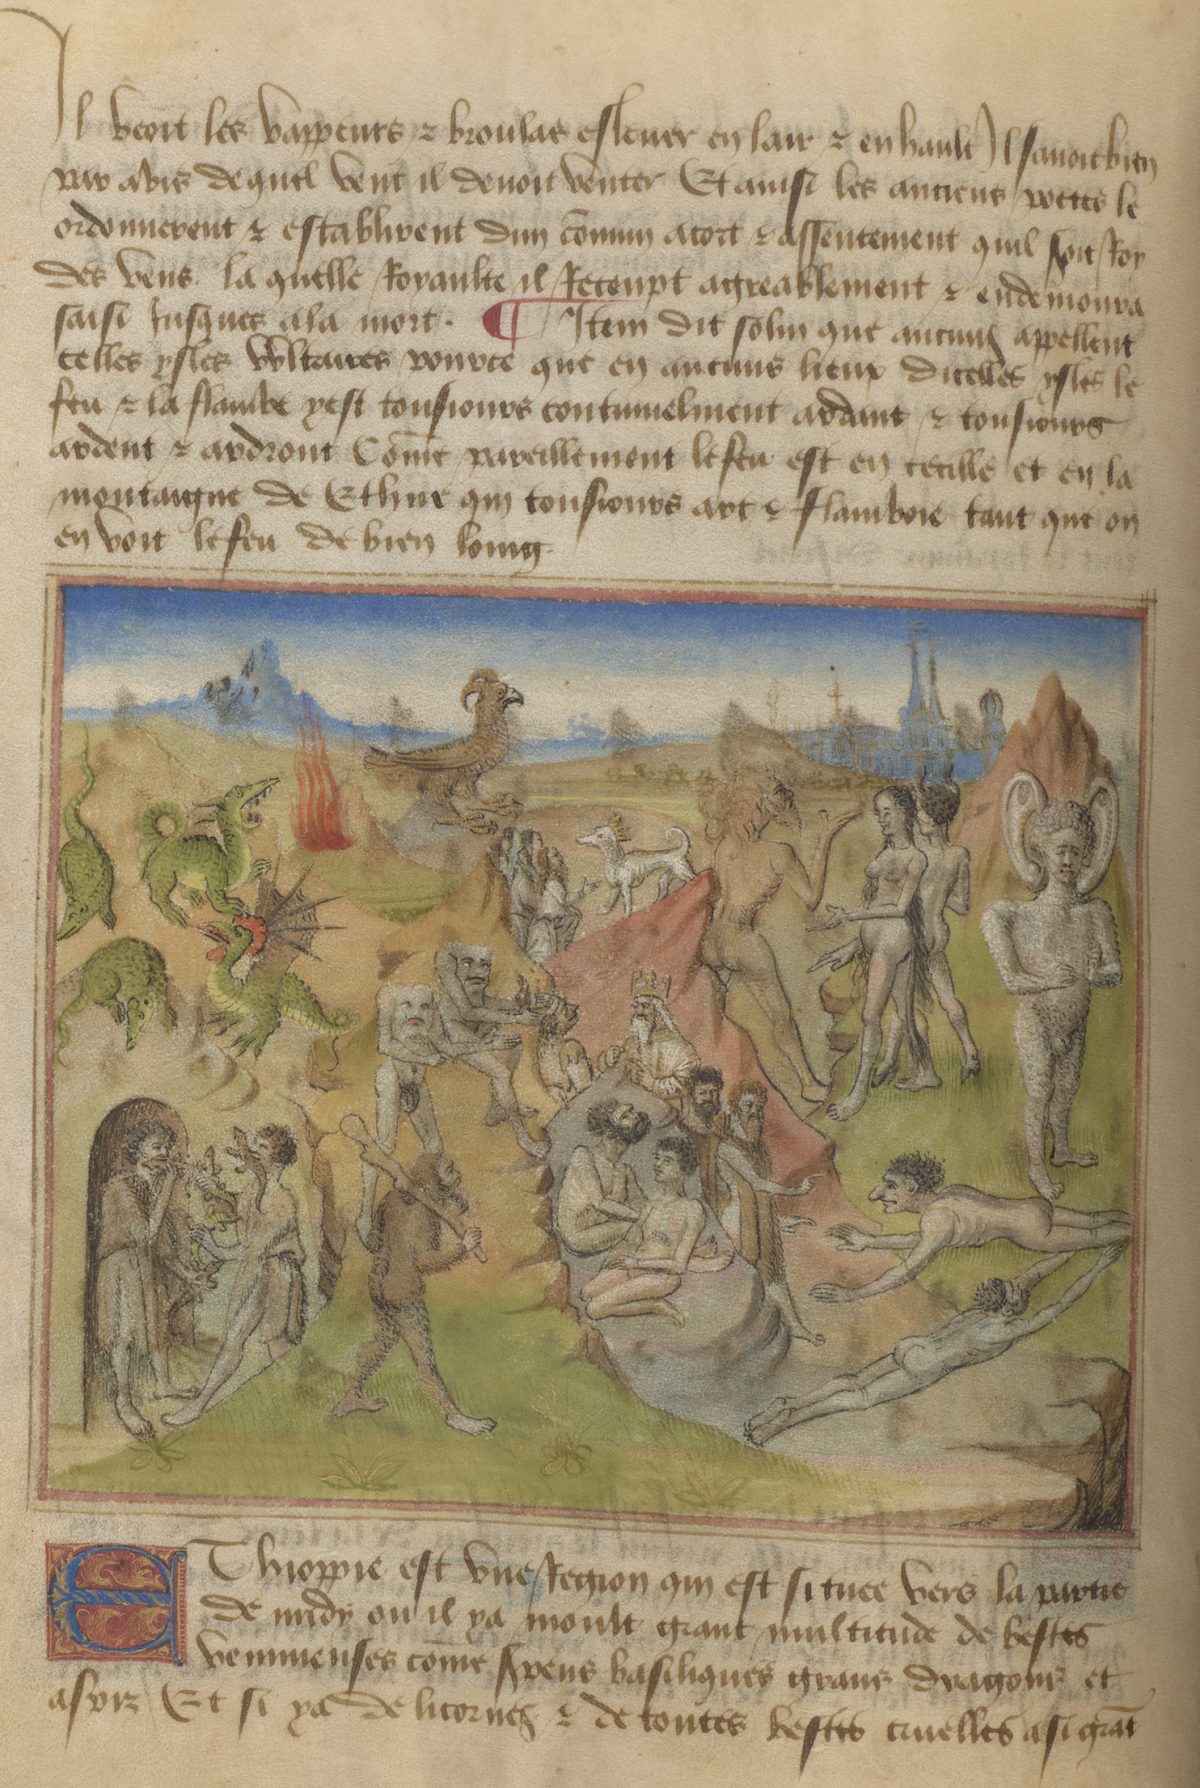 Il veoit les vappeurs ⁊ broulas eslever en lair ⁊ en hault Il savoit bien
par avis de quel vent il devoit venter Et ainsi les anciens poetes le
ordonnerent ⁊ establirent dun cõmun acort ⁊ assentement quil soit Roy
des vens. la quelle Royaulte il Receupt agreablement ⁊ en demoura
saisi Jusques a la mort. ¶ Item dit solin que aucuns appellent
celles ysles vultaires pource que en aucuns lieux dicelles ysles le
feu ⁊ la flambe yest tousiours continuelment ardant ⁊ tousiours
ardent ⁊ ardront Cõme pareillement le feu est en cecille et en la
montaigne de Ethne qui tousiours art ⁊ flamboie tant que on
en voit le feu de bien loing.
Ethioppie est vne Region qui est situee vers la partie
de midy ou il ya moult grant multitude de bestes
venimeuses cõme serpens basiliques grans dragons et
aspiz Et si ya de licornes ⁊ de toutes bestes cruelles a si grãt